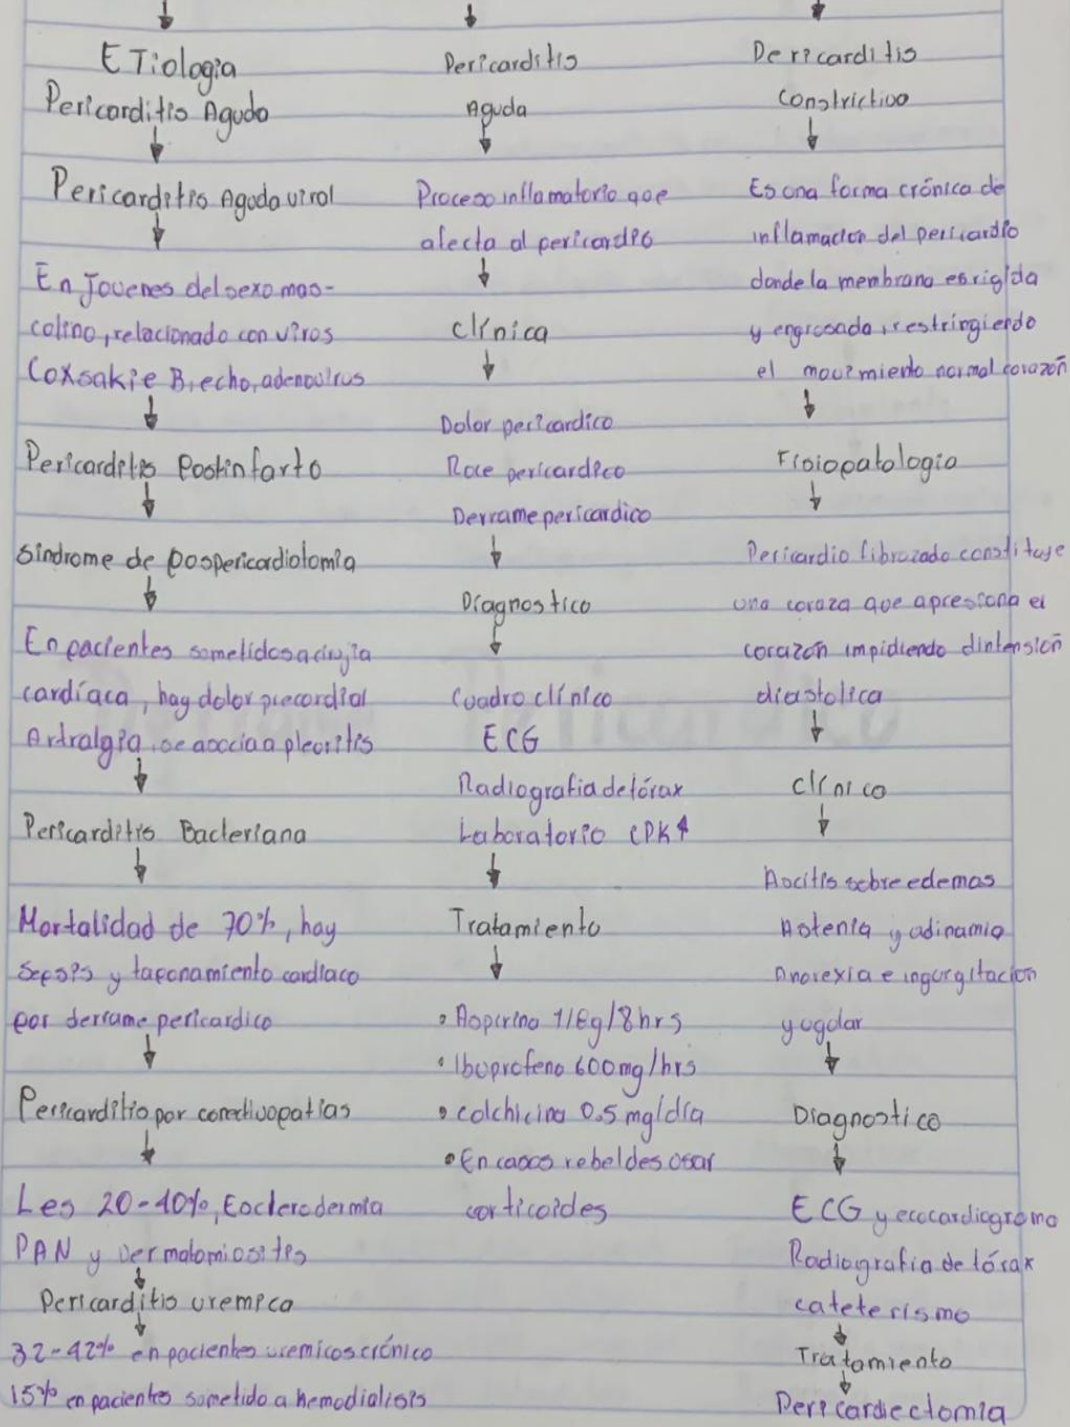 ETiologia
Pericarditis Aguda
Pericarditis Aguda viral
En Jovenes del sexo mas-
culino, relacionado con virus
Coxsakie B, echo, adenovirus
Pericarditis Postinfarto
Sindrome de pospericardiotomia
En pacientes sometidos a cirujia
cardíaca, hay dolor precordial
Artralgia, se asocia a pleuritis
Pericarditis Bacteriana
Mortalidad de 70%, hay
Sepsis y taponamiento cardiaco
por derrame pericardico
Pericarditis por conectivopatias
Les 20-40%, Esclerodermia
PAN y Dermatomiositis
Pericarditis uremica
32-42% en pacientes uremicos crónico
15% en pacientes sometido a hemodialisis
Pericarditis
Aguda
Proceso inflamatorio que
afecta al pericardio
Clínica
Dolor pericardico
Roce pericardico
Derrame pericardico
Diagnostico
Cuadro clínico
ECG
Radiografia de tórax
Laboratorio CPK↑
Tratamiento
• Aspirina 1/6g/8hrs
• Ibuprofeno 600mg/hrs
• Colchicina 0.5 mg/día
• En casos rebeldes usar
corticoides
Pericarditis
Constrictiva
Es una forma crónica de
inflamacion del pericardio
donde la membrana es rigida
y engrosada, restringiendo
el movimiento normal corazon
Fisiopatologia
Pericardio fibrozado constituye
una coraza que apresiona el
corazon impidiendo dintension
diastolica
Clínico
Ascitis sobre edemas
Astenia y adinamia
anorexia e ingurgitacion
yugular
Diagnostico
ECG y ecocardiograma
Radiografia de tórax
cateterismo
Tratamiento
Pericardiectomia